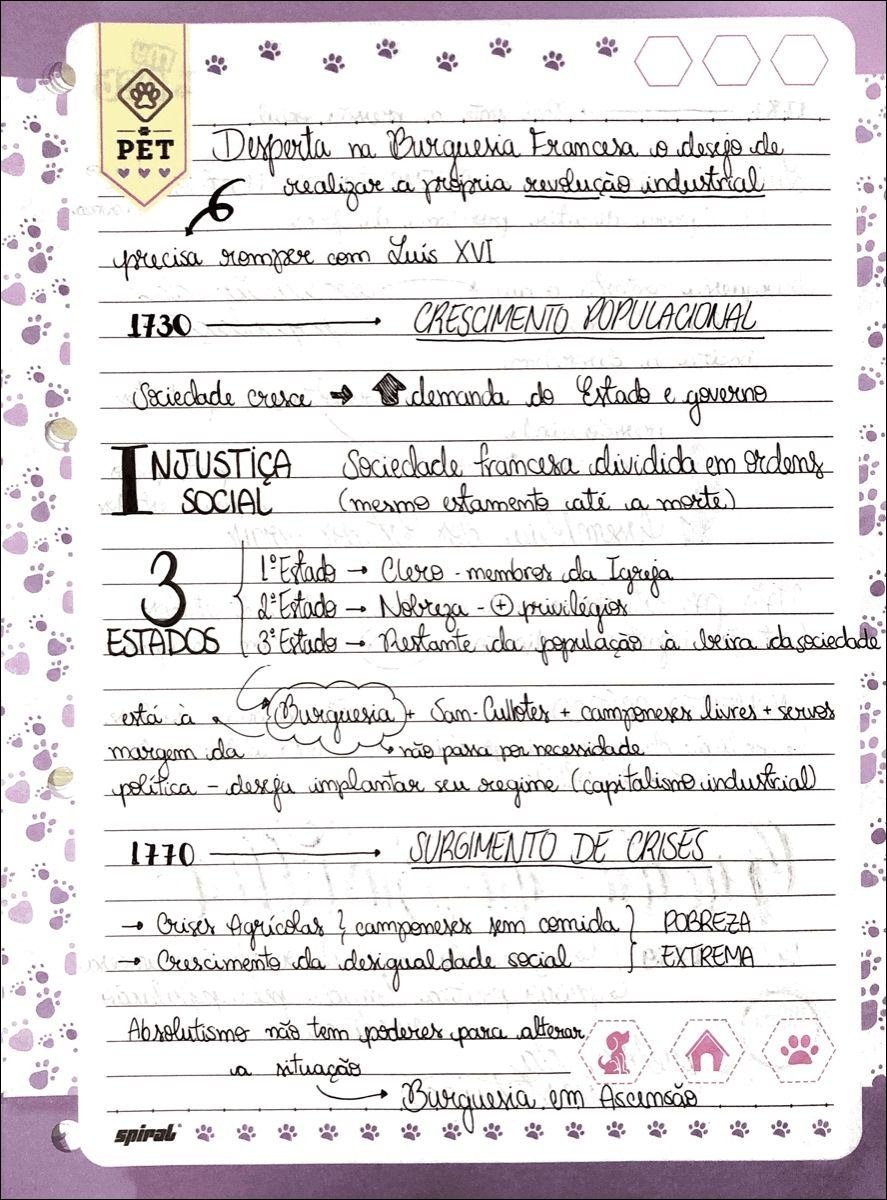 PET
Desperta na Burguesia Francesa o desejo de
realizar a própria revolução industrial
precisa romper com Luís XVI
1730 → CRESCIMENTO POPULACIONAL
Sociedade cresce ➔ ⬆ demanda do Estado e governo
INJUSTIÇA SOCIAL
Sociedade francesa dividida em ordens
(mesmo estamento até a morte)
3 ESTADOS
1º Estado → Clero - membros da Igreja
2º Estado → Nobreza - ⊕ privilégios
3º Estado → Restante da população à beira da sociedade
está à
Burguesia + Sam-Cullotes + camponeses livres + servos
margem da
não passa por necessidade
política - deseja implantar seu regime (capitalismo industrial)
1770 → SURGIMENTO DE CRISES
→ Crises Agrícolas } camponeses sem comida } POBREZA
→ Crescimento da desigualdade social } EXTREMA
Absolutismo não tem poderes para alterar
a situação
→ Burguesia em Ascensão
spiral